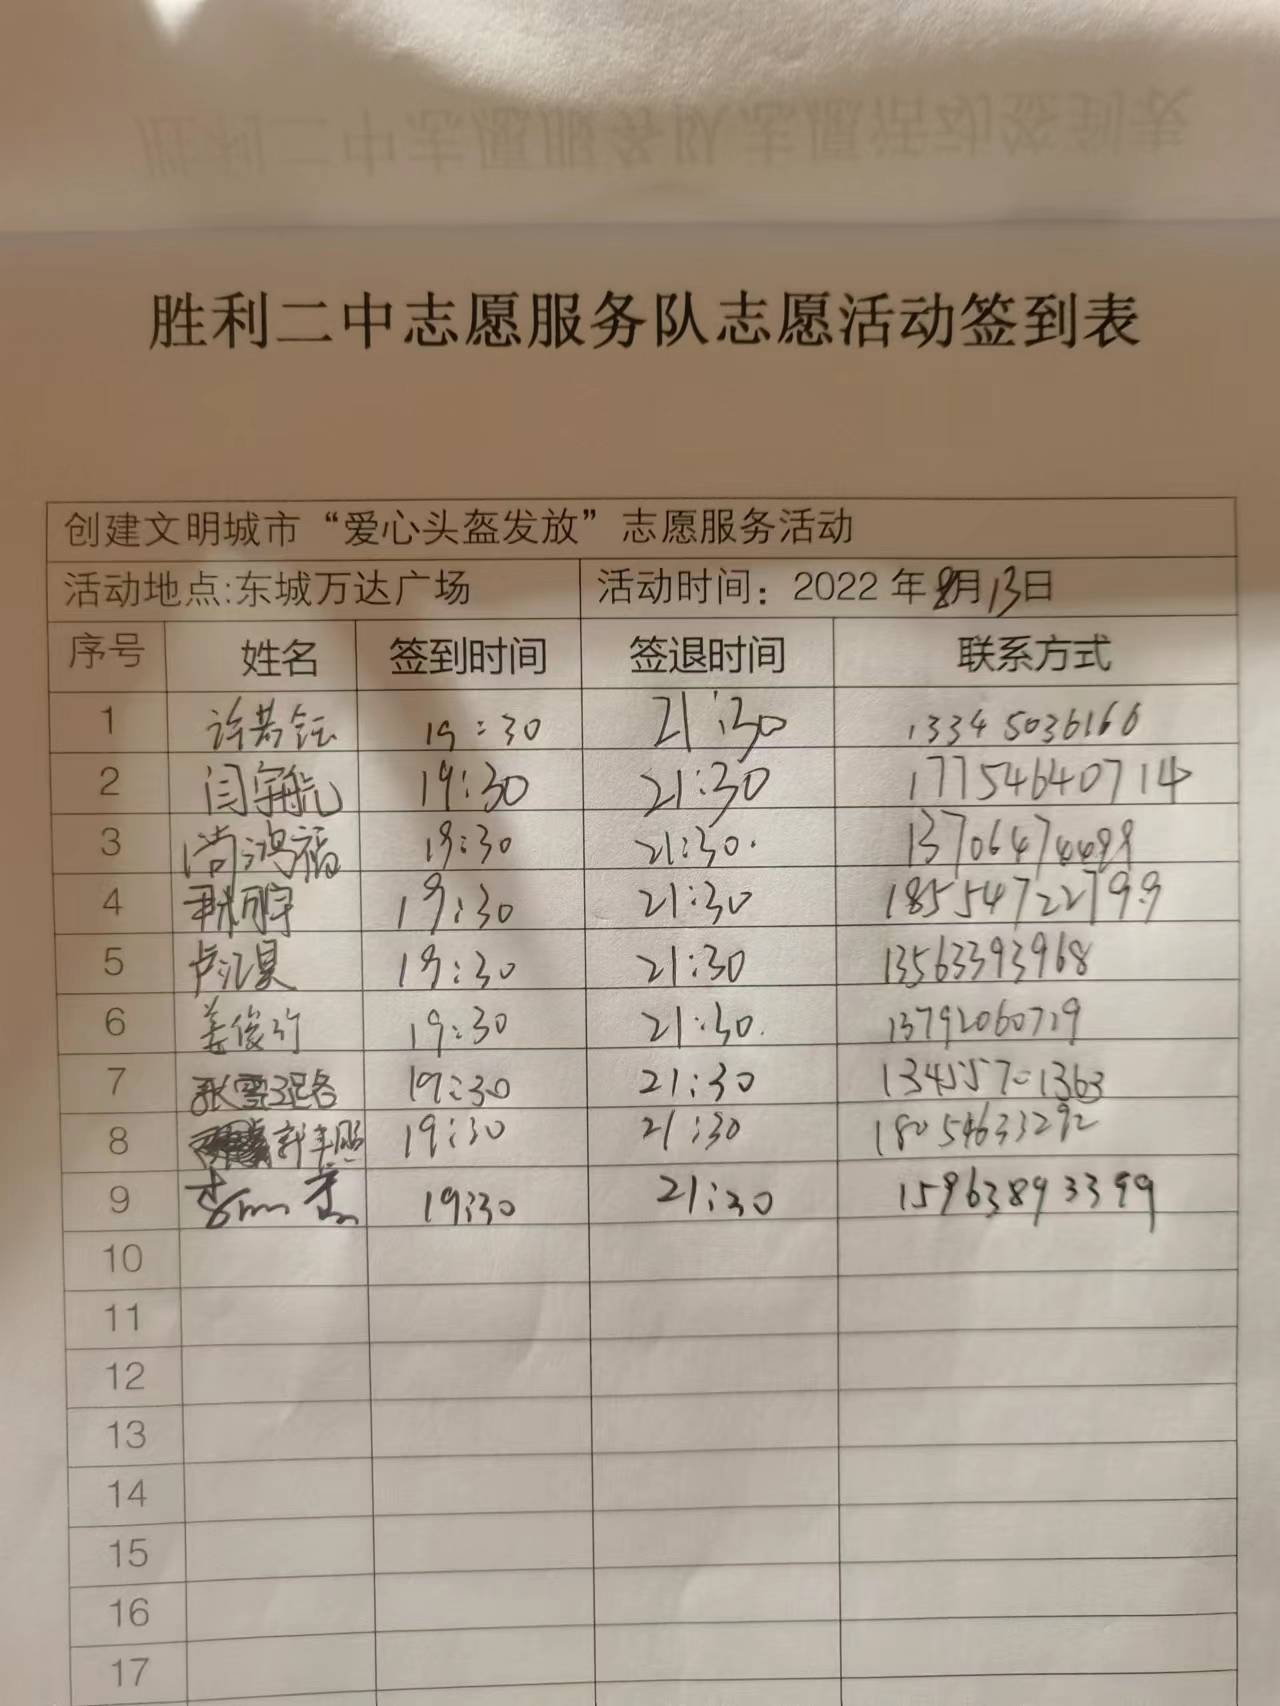 胜利二中志愿服务队志愿活动签到表
创建文明城市“爱心头盔发放”志愿服务活动
活动地点:东城万达广场 活动时间：2022年8月13日
序号 姓名 签到时间 签退时间 联系方式
1 许若钰 19:30 21:30 13345036166
2 闫宇航 19:30 21:30 17754640714
3 尚鸿福 19:30 21:30. 13706474499
4 19:30 21:30 18554722799
5 卢汇昊 19:30 21:30 13563393968
6 姜俊行 19:30 21:30. 13792060719
7 张雪 19:30 21:30 13455701363
8 19:30 21:30 18054633292
9 19:30 21:30 15963893399
10
11
12
13
14
15
16
17